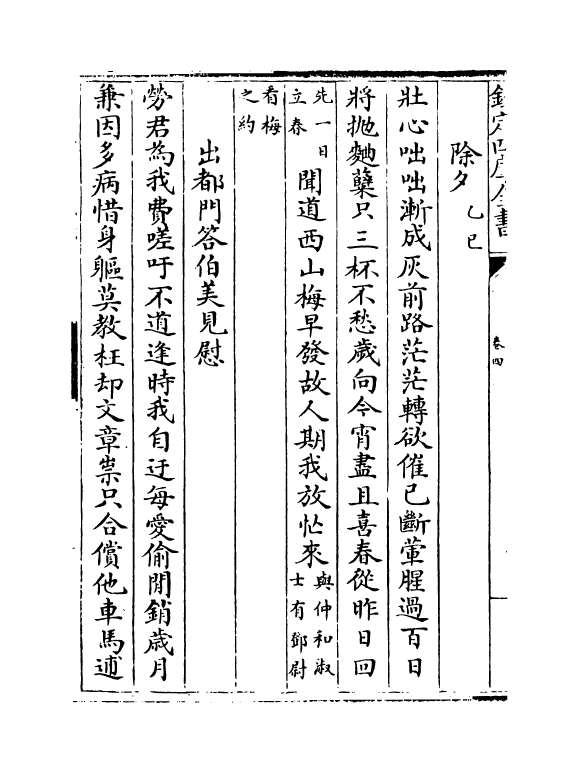 欽定四庫全書
卷四
除夕乙巳
壯心咄咄漸成灰前路茫茫轉欲催已斷葷腥過百日
將拋麯糵只三杯不愁歲向今宵盡且喜春從昨日回
先一日
立春
聞道西山梅早發故人期我放忙來
與仲和淑
士有鄧尉
看梅
之約
出都門答伯美見慰
勞君為我費嗟吁不道逢時我自迂每愛偷閒銷歲月
兼因多病惜身軀莫教枉却文章祟只合償他車馬逋